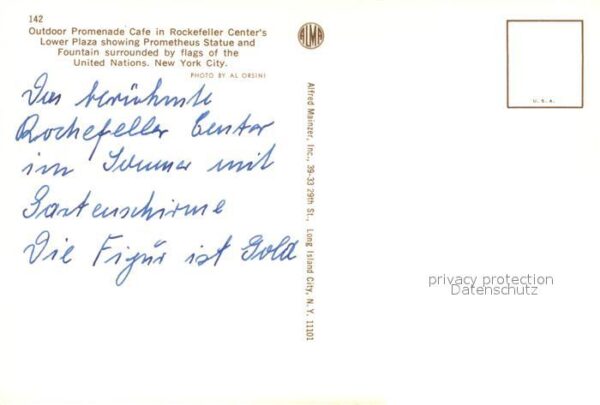 142
Outdoor Promenade Cafe in Rockefeller Center's
Lower Plaza showing Prometheus Statue and
Fountain surrounded by flags of the
United Nations. New York City.
PHOTO BY AL ORSINI
Das berühmte
Rochefeller Center
im Sommer mit
Gartenschirme
Die Figur ist Gold
ALMA
Alfred Mainzer, Inc., 39-33 29th St., Long Island City, N. Y. 11101
U. S. A.
privacy protection
Datenschutz